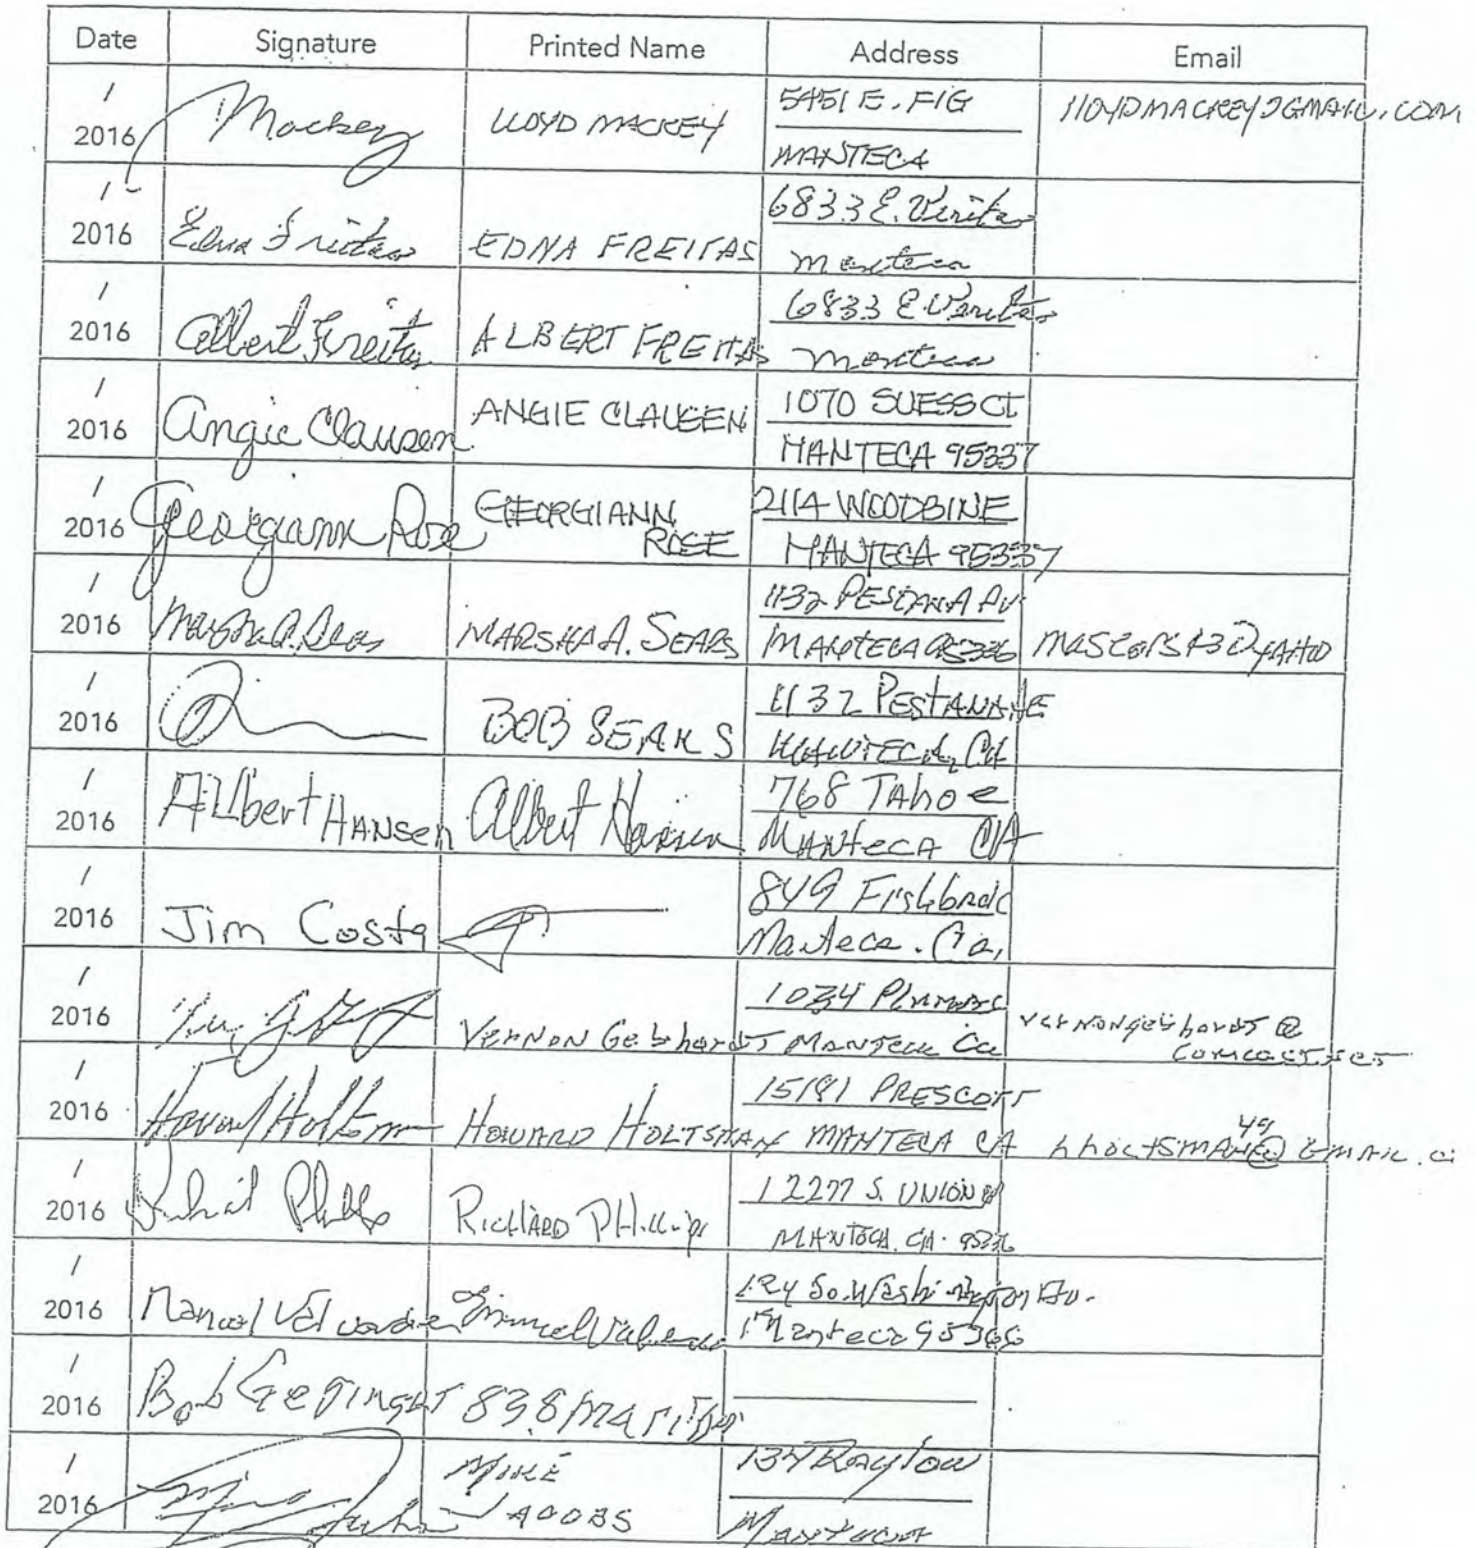 Date Signature Printed Name Address Email
/ 2016 Mackey LLOYD MACKEY 5451 E. FIG
MANTECA
/ 2016 Edna Freitas EDNA FREITAS 6833 E.
Manteca
/ 2016 Albert Freitas ALBERT FREITAS 6833 E
Manteca
/ 2016 Angie Clausen ANGIE CLAUSEN 1070 SUESS CT
MANTECA 95337
/ 2016 Georgiann Rose GEORGIANN ROSE 2114 WOODBINE
MANTECA 95337
/ 2016 Marsha A. Sears MARSHA A. SEARS 1132 PESTANA AV
MANTECA 95336
/ 2016 BOB SEARS 1132 PESTANA AVE
MANTECA, CA
/ 2016 Albert HANSEN Albert Hansen 768 TAHOE
MANTECA CA
/ 2016 Jim Costa 849
Manteca. Ca,
/ 2016 VERNON Gebhardt 1034
MANTECA Ca vernongebhardt@
comcast.net
/ 2016 Howard Holtsman HOWARD HOLTSMAN 15191 PRESCOTT
MANTECA CA hholtsman49@gmail.c
/ 2016 Richard Phillips RICHARD PHillips 12277 S. UNION Rd
MANTECA, CA. 95336
/ 2016 Manuel Valverde 124 So. Washington Av.
Manteca
/ 2016 Bob 838
/ 2016 MIKE JACOBS 134 Raylow
MANTECA